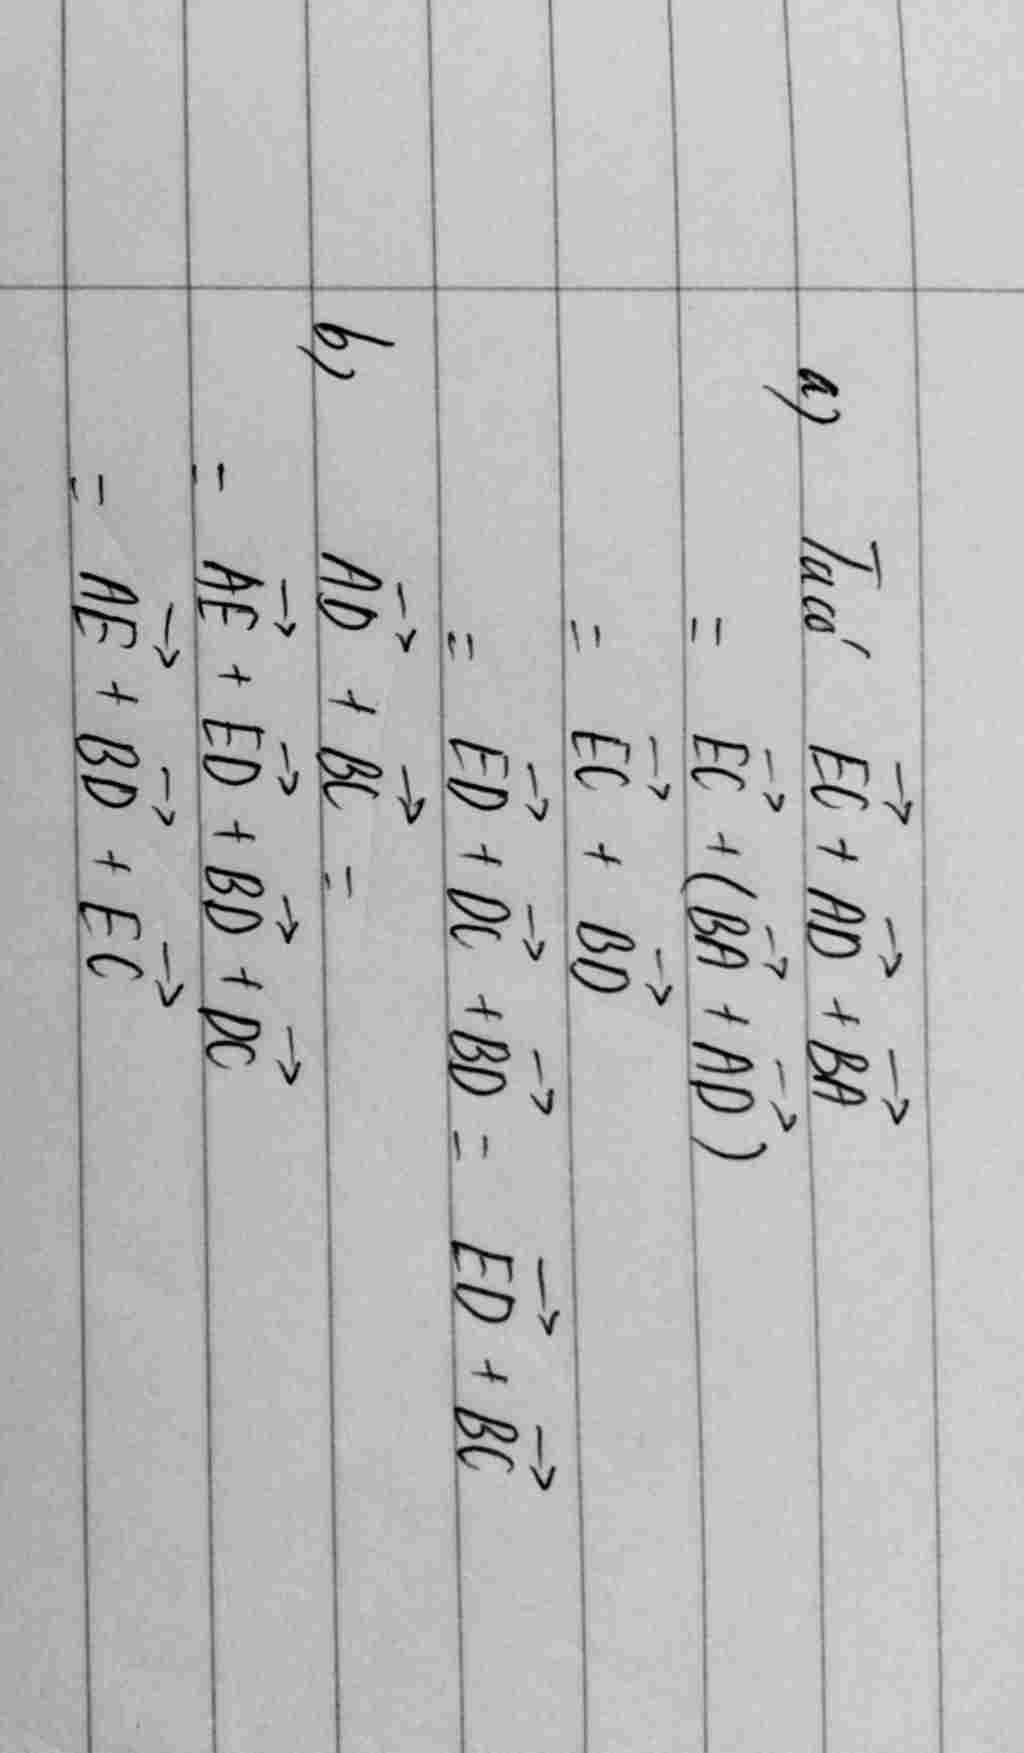 a) Ta có $\overrightarrow{EC} + \overrightarrow{AD} + \overrightarrow{BA}$
= $\overrightarrow{EC} + (\overrightarrow{BA} + \overrightarrow{AD})$
= $\overrightarrow{EC} + \overrightarrow{BD}$
= $\overrightarrow{ED} + \overrightarrow{DC} + \overrightarrow{BD} = \overrightarrow{ED} + \overrightarrow{BC}$
b) $\overrightarrow{AD} + \overrightarrow{BC} =$
= $\overrightarrow{AE} + \overrightarrow{ED} + \overrightarrow{BD} + \overrightarrow{DC}$
= $\overrightarrow{AE} + \overrightarrow{BD} + \overrightarrow{EC}$